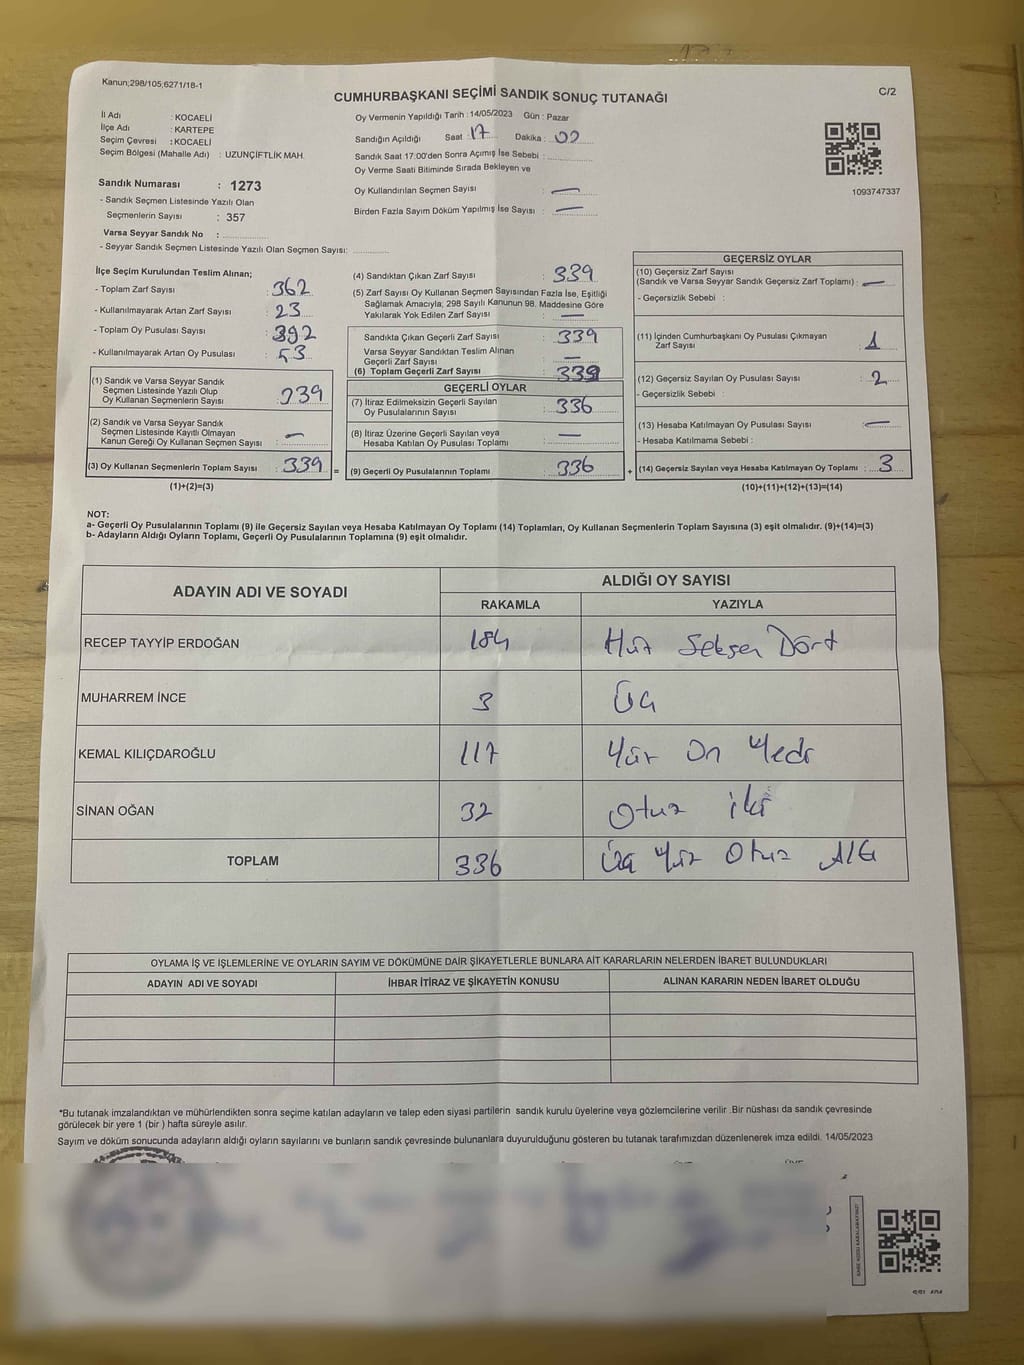 Kanun;298/105;6271/18-1
C/2
CUMHURBAŞKANI SEÇİMİ SANDIK SONUÇ TUTANAĞI
İl Adı : KOCAELİ
İlçe Adı : KARTEPE
Seçim Çevresi : KOCAELİ
Seçim Bölgesi (Mahalle Adı) : UZUNÇİFTLİK MAH.
Sandık Numarası : 1273
- Sandık Seçmen Listesinde Yazılı Olan
Seçmenlerin Sayısı : 357
Varsa Seyyar Sandık No :
- Seyyar Sandık Seçmen Listesinde Yazılı Olan Seçmen Sayısı:
Oy Vermenin Yapıldığı Tarih : 14/05/2023 Gün : Pazar
Sandığın Açıldığı Saat : 17 Dakika : 02
Sandık Saat 17:00'den Sonra Açımış İse Sebebi :
Oy Verme Saati Bitiminde Sırada Bekleyen ve
Oy Kullandırılan Seçmen Sayısı : —
Birden Fazla Sayım Döküm Yapılmış İse Sayısı : —
1093747337
İlçe Seçim Kurulundan Teslim Alınan;
- Toplam Zarf Sayısı : 362
- Kullanılmayarak Artan Zarf Sayısı : 23
- Toplam Oy Pusulası Sayısı : 392
- Kullanılmayarak Artan Oy Pusulası : 53
(1) Sandık ve Varsa Seyyar Sandık
Seçmen Listesinde Yazılı Olup
Oy Kullanan Seçmenlerin Sayısı : 339
(2) Sandık ve Varsa Seyyar Sandık
Seçmen Listesinde Kayıtlı Olmayan
Kanun Gereği Oy Kullanan Seçmen Sayısı : —
(3) Oy Kullanan Seçmenlerin Toplam Sayısı : 339
(1)+(2)=(3)
(4) Sandıktan Çıkan Zarf Sayısı : 339
(5) Zarf Sayısı Oy Kullanan Seçmen Sayısından Fazla İse, Eşitliği
Sağlamak Amacıyla; 298 Sayılı Kanunun 98. Maddesine Göre
Yakılarak Yok Edilen Zarf Sayısı : —
Sandıkta Çıkan Geçerli Zarf Sayısı : 339
Varsa Seyyar Sandıktan Teslim Alınan
Geçerli Zarf Sayısı : —
(6) Toplam Geçerli Zarf Sayısı : 339
GEÇERLİ OYLAR
(7) İtiraz Edilmeksizin Geçerli Sayılan
Oy Pusulalarının Sayısı : 336
(8) İtiraz Üzerine Geçerli Sayılan veya
Hesaba Katılan Oy Pusulası Toplamı : —
= (9) Geçerli Oy Pusulalarının Toplamı : 336
GEÇERSİZ OYLAR
(10) Geçersiz Zarf Sayısı
(Sandık ve Varsa Seyyar Sandık Geçersiz Zarf Toplamı) : —
- Geçersizlik Sebebi :
(11) İçinden Cumhurbaşkanı Oy Pusulası Çıkmayan
Zarf Sayısı : 1
(12) Geçersiz Sayılan Oy Pusulası Sayısı : 2
- Geçersizlik Sebebi :
(13) Hesaba Katılmayan Oy Pusulası Sayısı : —
- Hesaba Katılmama Sebebi :
+ (14) Geçersiz Sayılan veya Hesaba Katılmayan Oy Toplamı : 3
(10)+(11)+(12)+(13)=(14)
NOT:
a- Geçerli Oy Pusulalarının Toplamı (9) ile Geçersiz Sayılan veya Hesaba Katılmayan Oy Toplamı (14) Toplamları, Oy Kullanan Seçmenlerin Toplam Sayısına (3) eşit olmalıdır. (9)+(14)=(3)
b- Adayların Aldığı Oyların Toplamı, Geçerli Oy Pusulalarının Toplamına (9) eşit olmalıdır.
ADAYIN ADI VE SOYADI
ALDIĞI OY SAYISI
RAKAMLA YAZIYLA
RECEP TAYYİP ERDOĞAN 184 Yüz Seksen Dört
MUHARREM İNCE 3 Üç
KEMAL KILIÇDAROĞLU 117 Yüz On Yedi
SİNAN OĞAN 32 Otuz iki
TOPLAM 336 Üç Yüz Otuz Altı
OYLAMA İŞ VE İŞLEMLERİNE VE OYLARIN SAYIM VE DÖKÜMÜNE DAİR ŞİKAYETLERLE BUNLARA AİT KARARLARIN NELERDEN İBARET BULUNDUKLARI
ADAYIN ADI VE SOYADI İHBAR İTİRAZ VE ŞİKAYETİN KONUSU ALINAN KARARIN NEDEN İBARET OLDUĞU
*Bu tutanak imzalandıktan ve mühürlendikten sonra seçime katılan adayların ve talep eden siyasi partilerin sandık kurulu üyelerine veya gözlemcilerine verilir .Bir nüshası da sandık çevresinde
görülecek bir yere 1 (bir ) hafta süreyle asılır.
Sayım ve döküm sonucunda adayların aldığı oyların sayılarını ve bunların sandık çevresinde bulunanlara duyurulduğunu gösteren bu tutanak tarafımızdan düzenlenerek imza edildi. 14/05/2023